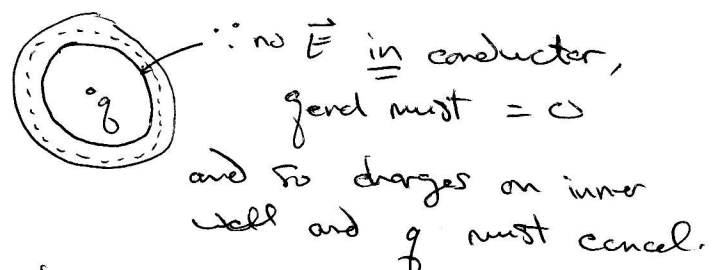 ∴ no E⃗ in conductor,
qencl must = 0
and so charges on inner
wall and q must cancel.
q